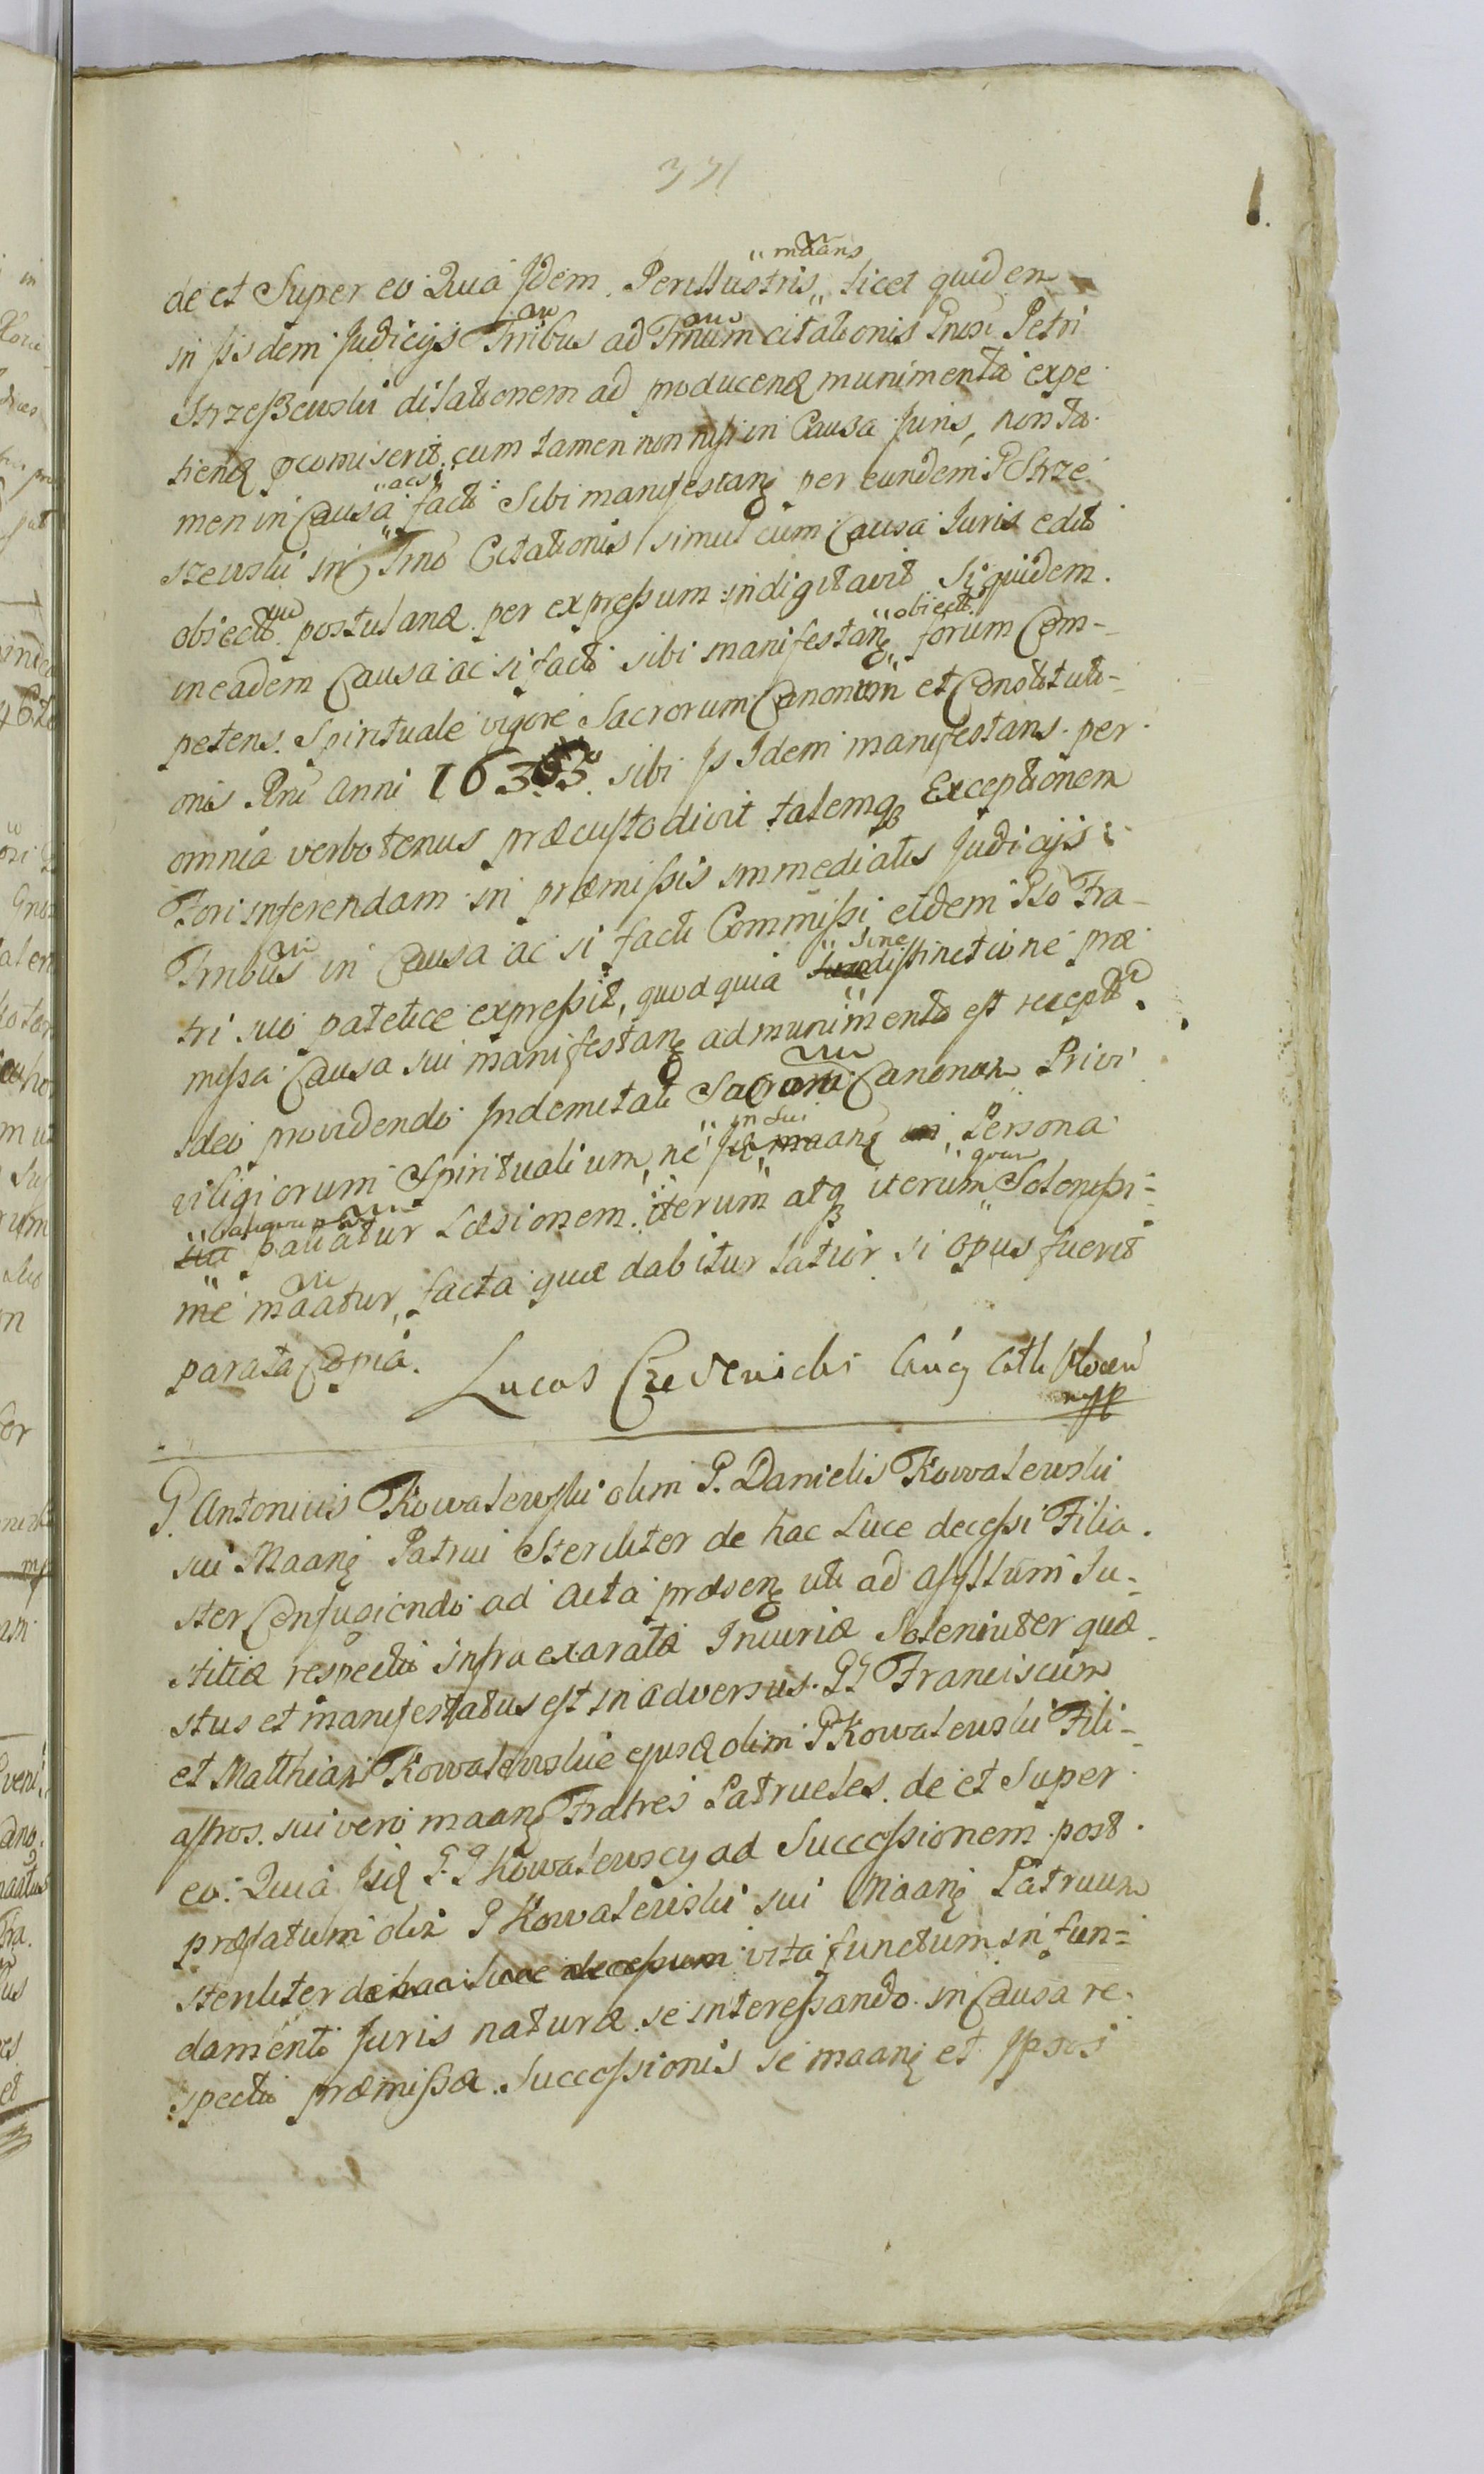 371
1.
„maans
de et Super eo Quia Idem Perillustris „ licet quidem
in iisdem Judicijs Trribus ad Trnum citationis Gnosi Petri
StrzeszBewski dilationem ad producend munimenta expe
tiend pcomiserit, cum tamen non nisi in Causa Juris, non ta
„acsi
men in Causa facti Sibi manifestanę per eundem P Strze
szewski in Trno Citationis simul cum Causa Juris edito
objecto postuland per expressum indigitavit Siquidem
„objecti
in eadem Causa ac si facti sibi manifestanę forum Com-
petens Spirituale vigore Sacrorum Canonum et Constituti-
onis Rni Anni 1635 sibi Idem manifestans per
omnia verbotenus præcustodivit talemq Exceptionem
Fori inferendam in præmissis immediatis Judicijs
Trribus in Causa ac si facti Commissi eidem Pso Fra-
„sine
tri suo patetice expressit, quod quia distinctione præ
missa Causa sui manifestanę ad munimenta est recepta
ideo providendo Indemnitati Sacrorum Canonum Privi
„in sui
viligiorum Spiritualium, ne maanę Persona
„quam
patiatur Læsionem iterum atq iterum Solenissi-
me maatur, facta quæ dabitur latior si opus fuerit
parata Copia.
Lucas
mpp
P. Antonius Kowalewski olim P. Danielis Kowalewski
sui Maanę Patrui Steriliter de hac Luce decessi Filia
ster Confugiendo ad Acta præsenę uti ad asyllum Ju-
stitiæ respectu infra exaratæ Injuriæ Soleniter quæ
stus et manifestatus est in adversus PP Franciscum
et Matthiam Kowalewskie ejusd olim P Kowalewski Fili-
astros sui vero maanę Fratres Patrueles de et Super
eo: Quia Iid P.P Kowalewscy ad Successionem post
præfatum olim P Kowalewski sui Maanę Patruum
steriliter de hac luce decessum vita functum in fun-
damento Juris naturæ se interessando in Causa re
spectu præmissæ Successionis se maanę et Ipsos